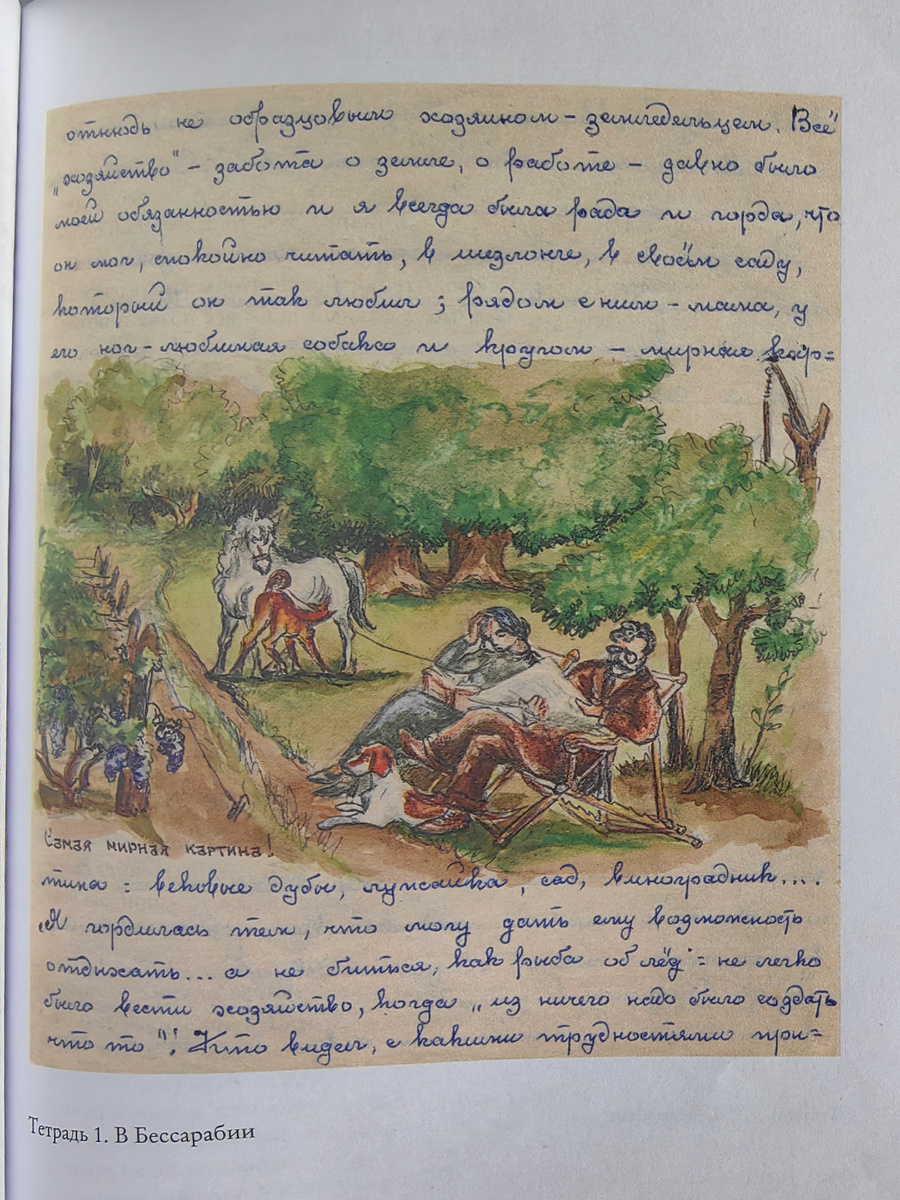 отнюдь не образцовым хозяином-земледельцем. Всё
"хозяйство" - забота о земле, о работе - давно было
моей обязанностью и я всегда была рада и горда, что
он мог, спокойно читать, в шезлонге, в своём саду,
который он так любил; рядом с ним - мама, у
его ног - любимая собака и кругом - мирная кар=
Самая мирная картина!
тина: вековые дубы, лужайка, сад, виноградник....
Я гордилась тем, что могу дать ему возможность
отдыхать... а не биться, как рыба об лёд: не легко
было вести хозяйство, когда „из ничего надо было создать
что то"! Кто видел, с какими трудностями при=
Тетрадь 1. В Бессарабии